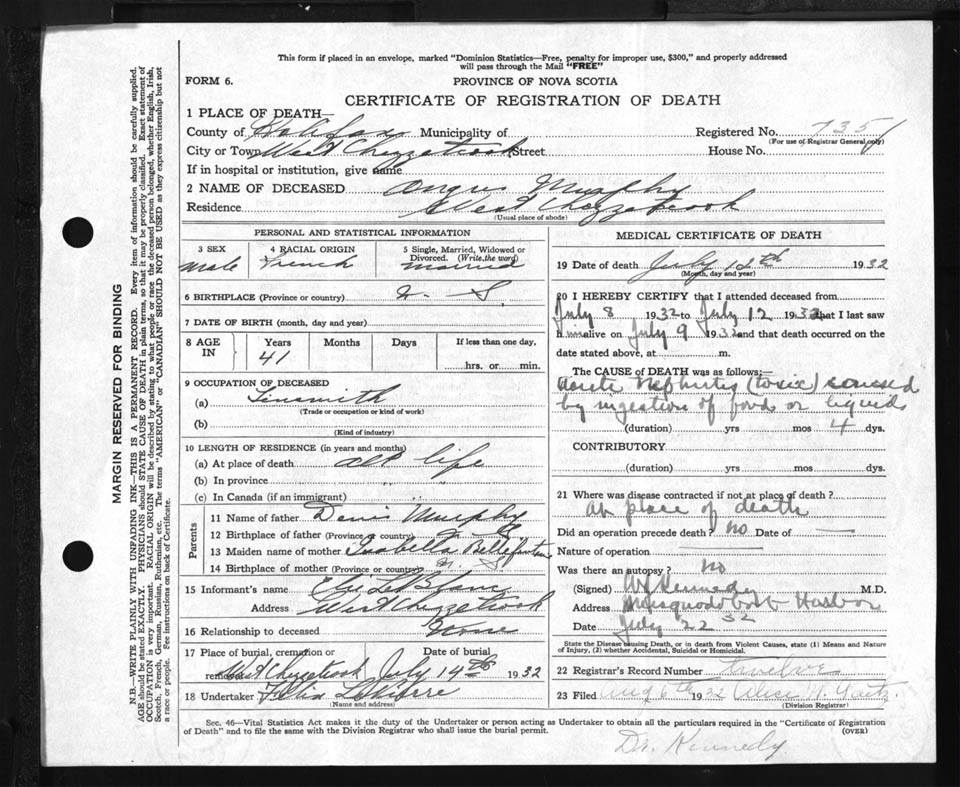 This form if placed in an envelope, marked "Dominion Statistics—Free, penalty for improper use, $300," and properly addressed
will pass through the Mail "FREE"
FORM 6.
PROVINCE OF NOVA SCOTIA
CERTIFICATE OF REGISTRATION OF DEATH
1 PLACE OF DEATH—
County of Halifax Municipality of Registered No. 7351
(For use of Registrar General only)
City or Town West Chezzetcook Street House No.
If in hospital or institution, give name
2 NAME OF DECEASED Angus Murphy
Residence West Chezzetcook
(Usual place of abode)
PERSONAL AND STATISTICAL INFORMATION
3 SEX 4 RACIAL ORIGIN 5 Single, Married, Widowed or
Divorced. (Write the word)
Male French Married
6 BIRTHPLACE (Province or country) N. S.
7 DATE OF BIRTH (month, day and year)
8 AGE IN Years Months Days If less than one day,
41 hrs. or min.
9 OCCUPATION OF DECEASED
(a) Tinsmith
(Trade or occupation or kind of work)
(b)
(Kind of industry)
10 LENGTH OF RESIDENCE (in years and months)
(a) At place of death all life
(b) In province
(c) In Canada (if an immigrant)
Parents
11 Name of father Denis Murphy
12 Birthplace of father (Province or country) N. S.
13 Maiden name of mother Isabella Bellefontaine
14 Birthplace of mother (Province or country) N. S
15 Informant's name LeBlanc
Address West Chezzetcook
16 Relationship to deceased None
17 Place of burial, cremation or Date of burial
removal West Chezzetcook July 14th 1932
18 Undertaker
(Name and address)
MEDICAL CERTIFICATE OF DEATH
19 Date of death July 12th 1932
(Month, day and year)
20 I HEREBY CERTIFY that I attended deceased from
July 8 1932 to July 12 1932 that I last saw
h im alive on July 9 1932 and that death occurred on the
date stated above, at m.
The CAUSE OF DEATH was as follows:—
Acute Nephritis (toxic) caused
by ingestion of food or liquids
(duration) yrs mos 4 dys.
CONTRIBUTORY
(duration) yrs mos dys.
21 Where was disease contracted if not at place of death?
At place of death
Did an operation precede death? No Date of
Nature of operation
Was there an autopsy? no
(Signed) Kennedy M.D.
Address Musquodoboit Harbor
Date July 22 32
State the Disease causing Death, or in death from Violent Causes, state (1) Means and Nature
of Injury, (2) whether Accidental, Suicidal or Homicidal.
22 Registrar's Record Number twelve
23 Filed Aug 6th 1932 Alice
(Division Registrar)
Sec. 46—Vital Statistics Act makes it the duty of the Undertaker or person acting as Undertaker to obtain all the particulars required in the "Certificate of Registration
of Death" and to file the same with the Division Registrar who shall issue the burial permit. (OVER)
Dr. Kennedy.
MARGIN RESERVED FOR BINDING
N.B.—WRITE PLAINLY WITH UNFADING INK—THIS IS A PERMANENT RECORD. Every item of information should be carefully supplied.
AGE should be stated EXACTLY. PHYSICIANS should STATE CAUSE OF DEATH in plain terms, so that it may be properly classified. Exact statement of
OCCUPATION is very important. RACIAL ORIGIN will be described by stating to what people or race the deceased person belonged, whether English, Irish,
Scotch, French, German, Russian, Ruthenian, etc. The terms "AMERICAN" or "CANADIAN" SHOULD NOT BE USED as they express citizenship but not
a race or people. See instructions on back of Certificate.